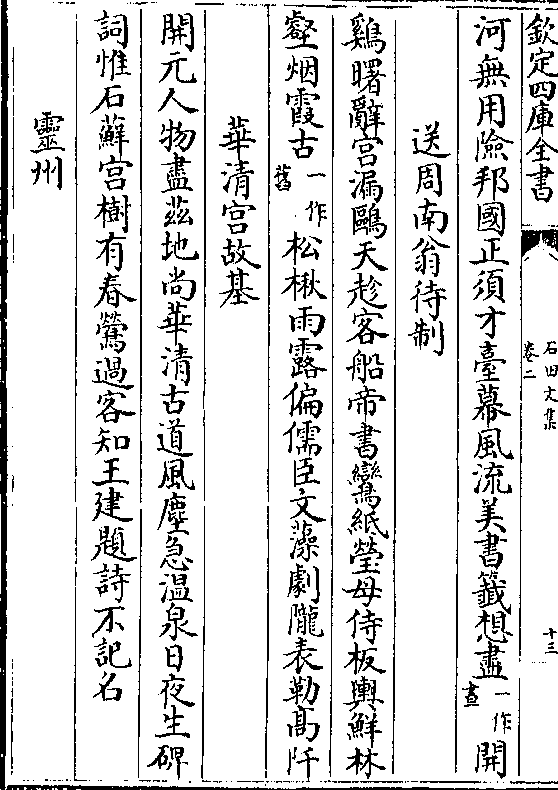 欽定四庫全書
石田文集
卷二
十三
河無用險邦國正須才臺幕風流美書籤想盡一作畫開
送周南翁待制
鷄曙辭宫漏鷗天趁客船帝書鸞紙瑩母侍板輿鮮林
壑烟霞古一作舊松楸雨露偏儒臣文藻劇隴表勒髙阡
華清宫故基
開元人物盡兹地尚華清古道風塵急温泉日夜生碑
詞惟石蘚宫樹有春鶯過客知王建題詩不記名
靈州